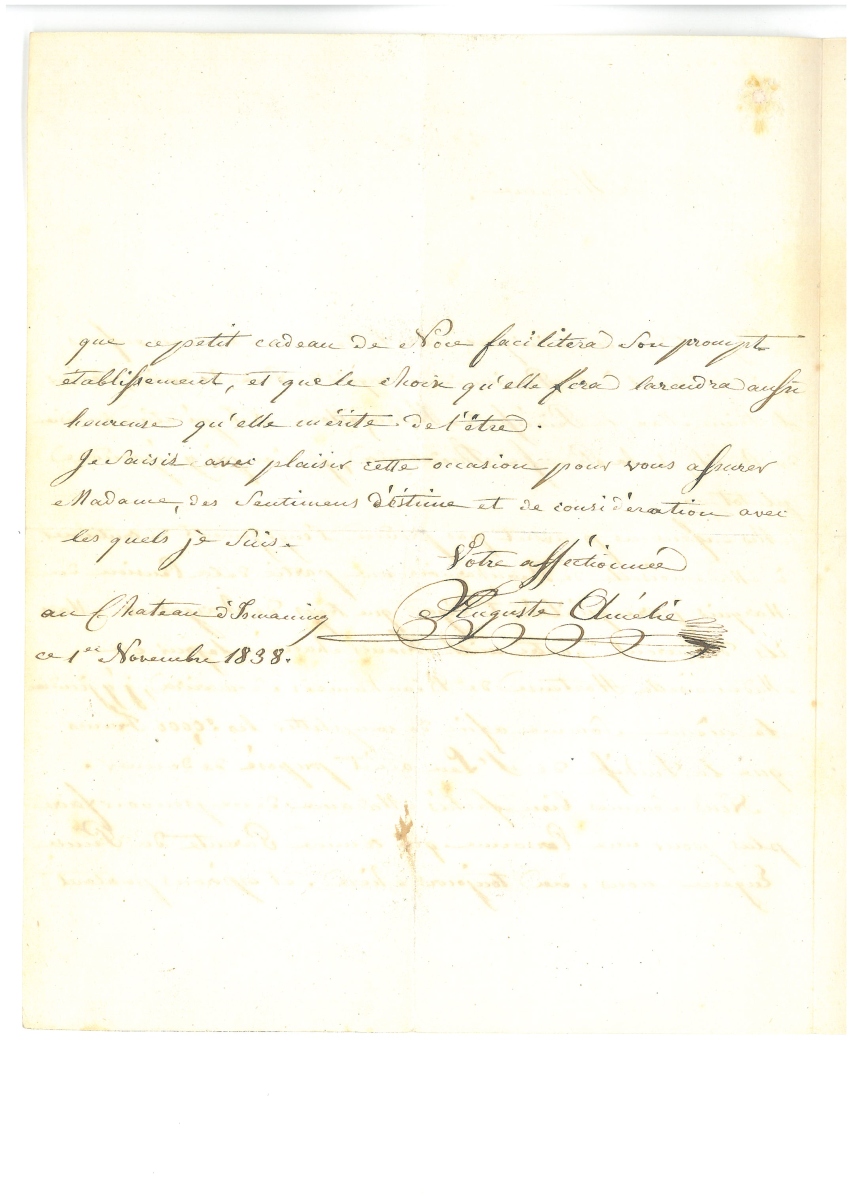 que ce petit cadeau de Noce facilitera son prompt
établissement, et que le choix qu'elle fera la rendra aussi
heureuse qu'elle mérite de l'être.
Je saisis avec plaisir cette occasion pour vous assurer
Madame, des sentimens d'éstime et de considération avec
les quels je suis.
Votre affectionnée
au Chateau d'Ismaning
Auguste Amélie
ce 1er Novembre 1838.